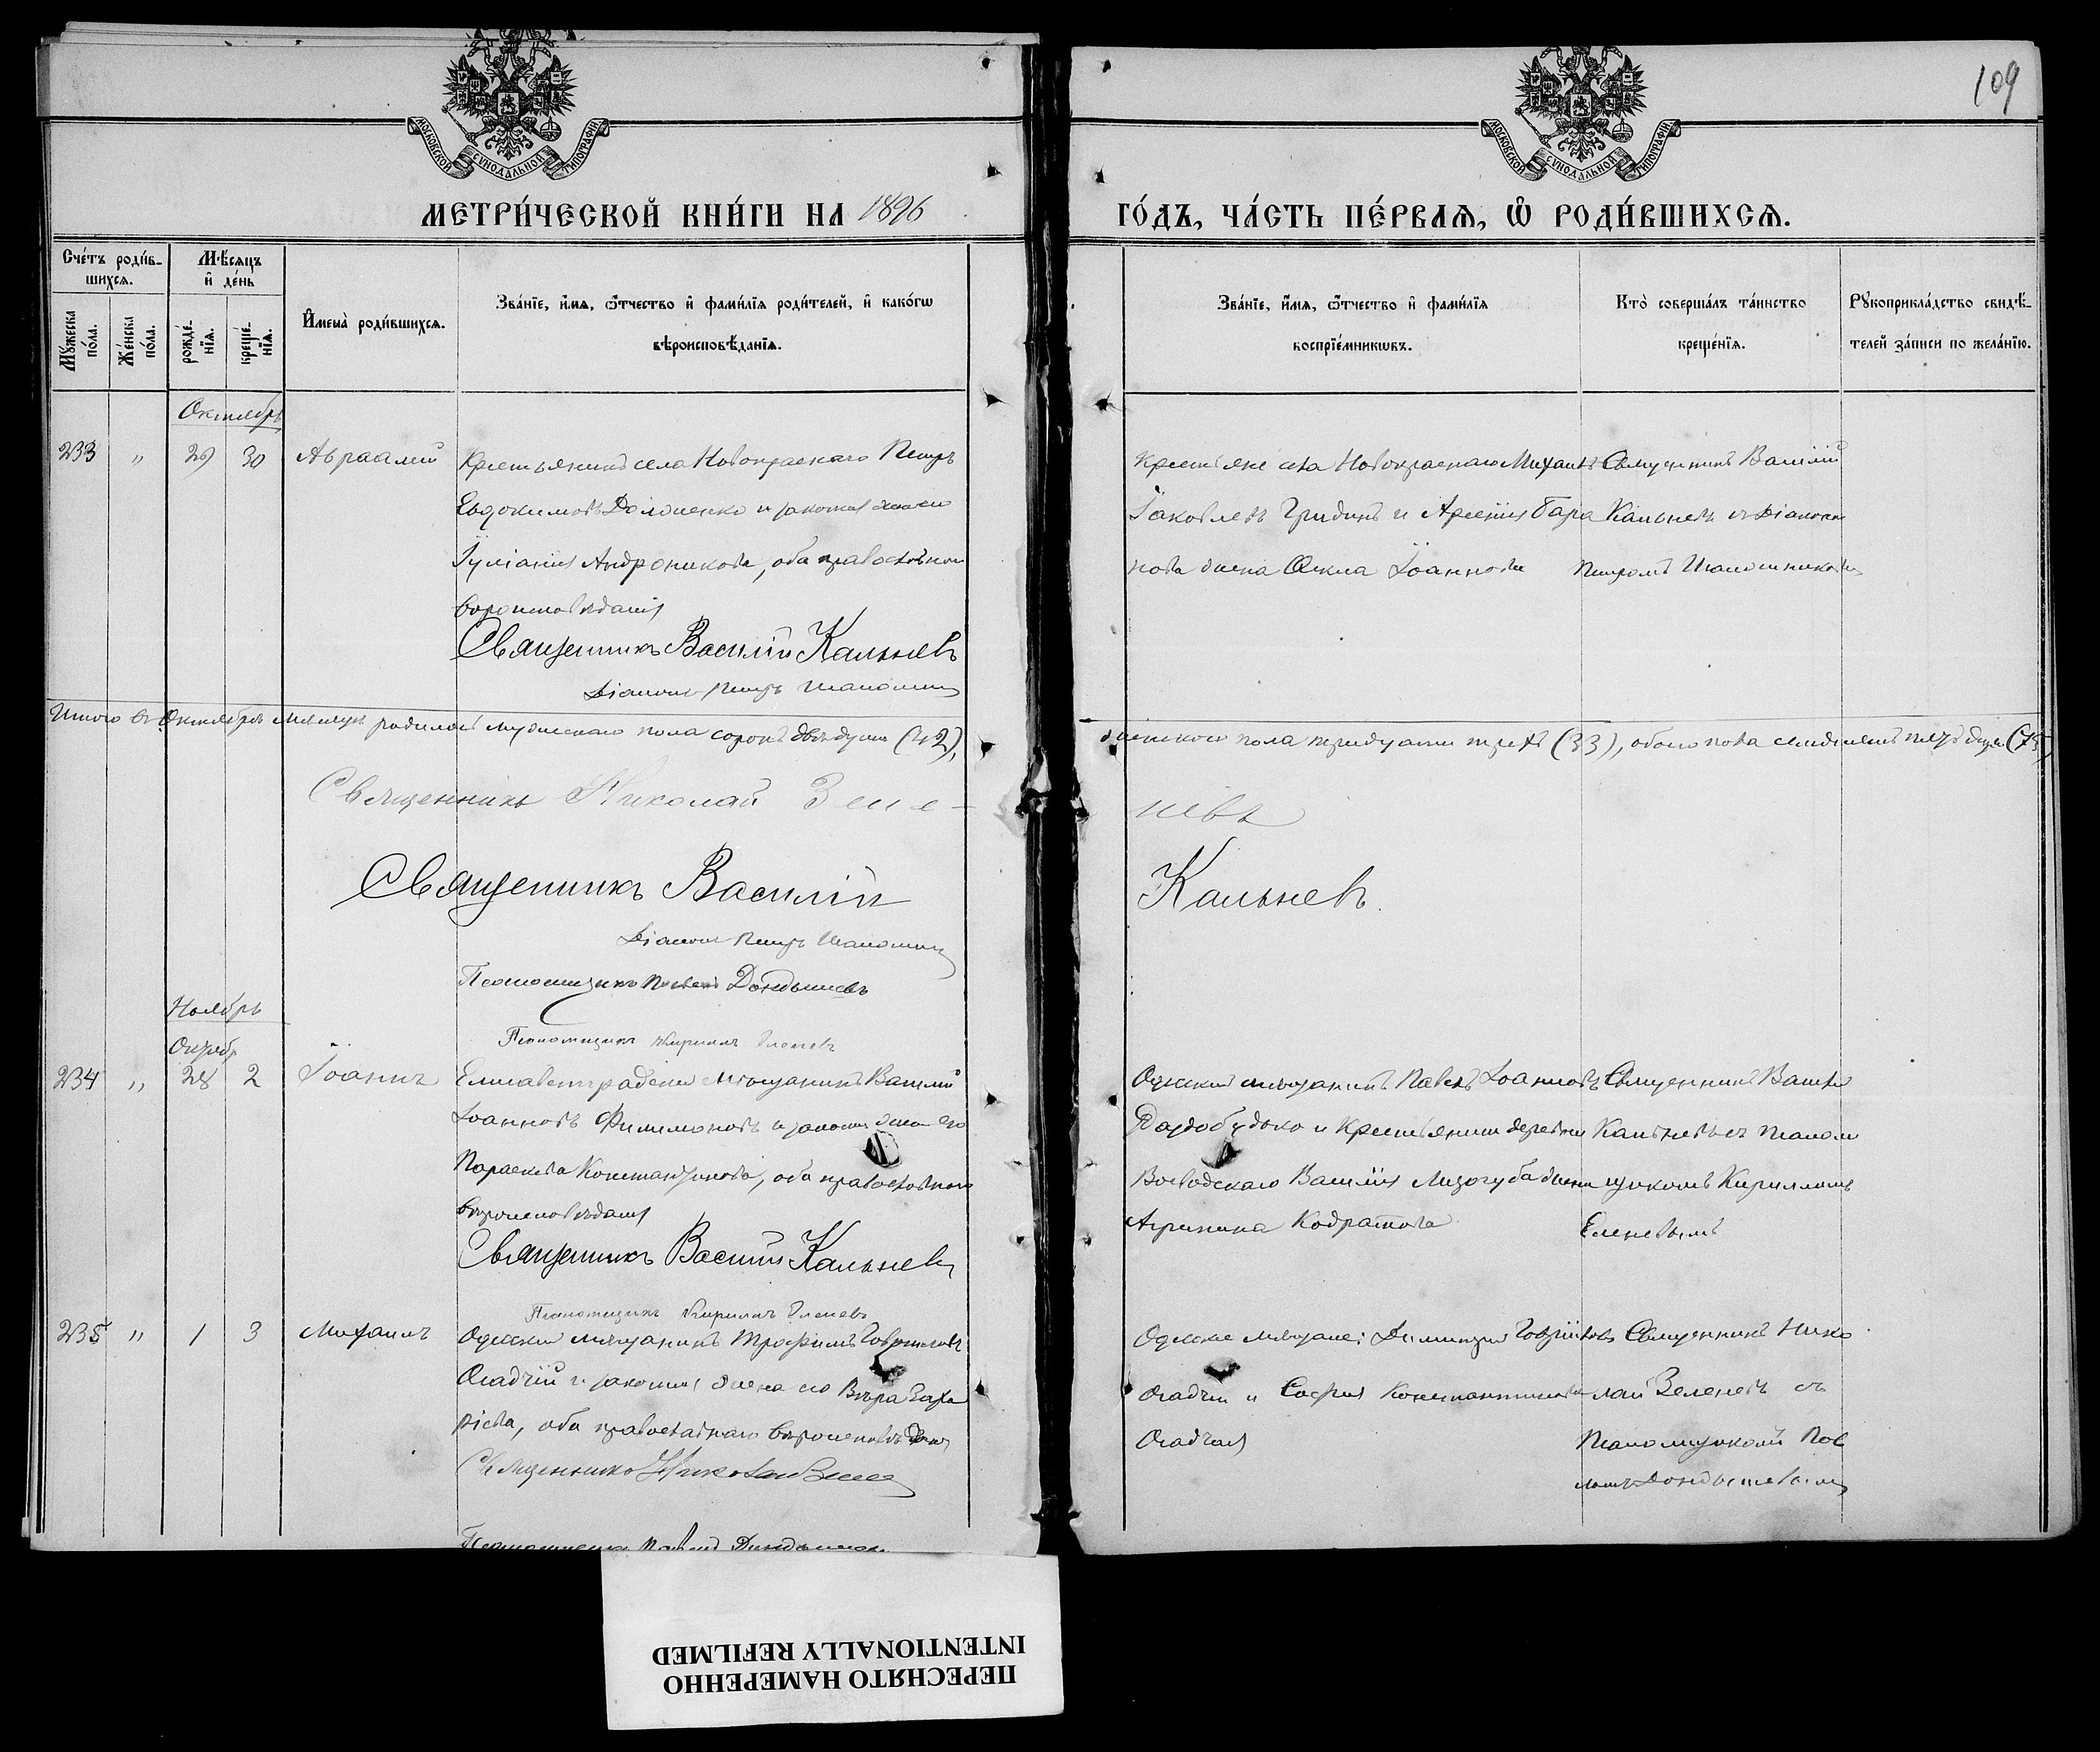 109
МОСКОВСКОЙ СѴНОДАЛЬНОЙ ТИПОГРАФІИ
МОСКОВСКОЙ СѴНОДАЛЬНОЙ ТИПОГРАФІИ
МЕТРИ́ЧЕСКОЙ КНИ́ГИ НА 1896
ГО́ДЪ, ЧА́СТЬ ПЕ́РВАѦ, Ѽ РОДИ́ВШИХСѦ.
Сче́тъ роди́в-
шихсѧ.
Мѣ́сѧцъ
и҆ де́нь
Мꙋ́жеска
по́ла.
Же́нска
по́ла.
рожде́-
нїѧ.
креще́-
нїѧ.
И҆мена̀ роди́вшихсѧ.
Зва́нїе, и҆́мѧ, ѻ҆́тчество и҆ фами́лїѧ роди́телей, и҆ како́гѡ
вѣроисповѣ́данїѧ.
Зва́нїе, и҆́мѧ, ѻ҆́тчество и҆ фами́лїѧ
воспрїе́мникѡвъ.
Кто̀ соверша́лъ та́инство
креще́нїѧ.
Рꙋкоприкла́дство свидѣ́-
телей за́писи по жела́нїю.
Октябрь
233 " 29 30 Авраамій
Крестьянинъ села Новокраснаго Петръ
Евдокимовъ и законная жена его
Іуліанія Андроникова, оба православнаго
вѣроисповѣданія
Священникъ Василій Кальневъ
Діаконъ Петръ
Крестьяне села Новокраснаго Михаилъ
Іаковлевъ Гридинъ и Арсенія
жена Іоаннова
Священникъ Василій
Кальневъ съ Діакономъ
Петромъ
Итого въ Октябрѣ мѣсяцѣ родилось мужескаго пола сорокъ двѣ души (42),
женскаго пола тридцать три (33), обоего пола семьдесятъ пять душъ (75)
Священникъ Николай Зеле-
невъ
Священникъ Василій
Кальневъ
Діаконъ Петръ
Псаломщикъ Павелъ Дондышевъ
Псаломщикъ Кириллъ Еленевъ
Ноябрь
Октябр
234 " 28 2 Іоаннъ
Елисаветградскій мѣщанинъ Василій
Іоанновъ Филимоновъ и законная жена его
Параскева Константинова, оба православнаго
вѣроисповѣданія
Священникъ Василій Кальневъ
Псаломщикъ Кириллъ Еленевъ
Одесскій мѣщанинъ Павелъ Іоанновъ
Раздобудько и Крестьянина деревни
Воеводскаго Василія Лизогуба жена
Агрипина Кодратова
Священникъ Василій
Кальневъ съ псалом
щикомъ Кирилломъ
Еленевымъ
235 " 1 3 Михаилъ
Одесскій мѣщанинъ Трофимъ Гавріиловъ
Осадчій и законная жена его Вѣра Заха
ріева, оба православнаго вѣроисповѣданія
Священникъ Николай Зеленевъ
Псаломщикъ Павелъ Дондышевъ
Одесскіе мѣщане: Димитрій Гавріиловъ
Осадчій и Софія Константинова
Осадчая
Священникъ Нико
лай Зеленевъ съ
Псаломщикомъ Пав
ломъ Дондышевымъ
ПЕРЕСНЯТО НАМЕРЕННО
INTENTIONALLY REFILMED